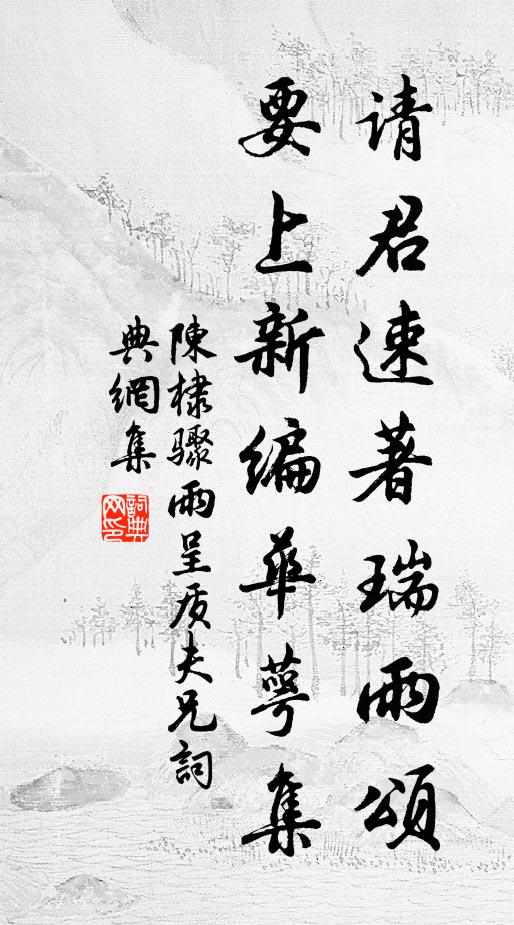 请君速著瑞雨颂
要上新编华萼集
陳棣驟雨呈质夫兄詞
典網集
詞典网印